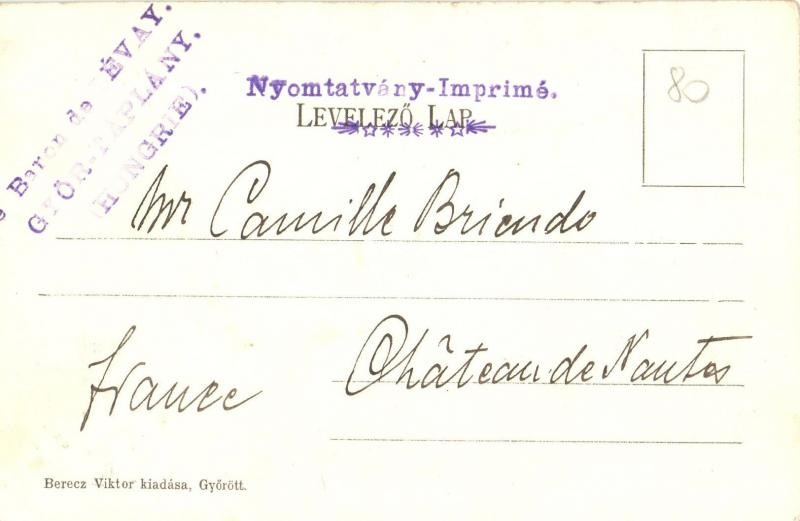 Baron de LÉVAY.
GYŐR-TÁPLÁNY.
(HONGRIE).
Nyomtatvány-Imprimé.
LEVELEZŐ LAP.
80
Mr Camille Briendo
Château de Nantes
France
Berecz Viktor kiadása, Győrött.